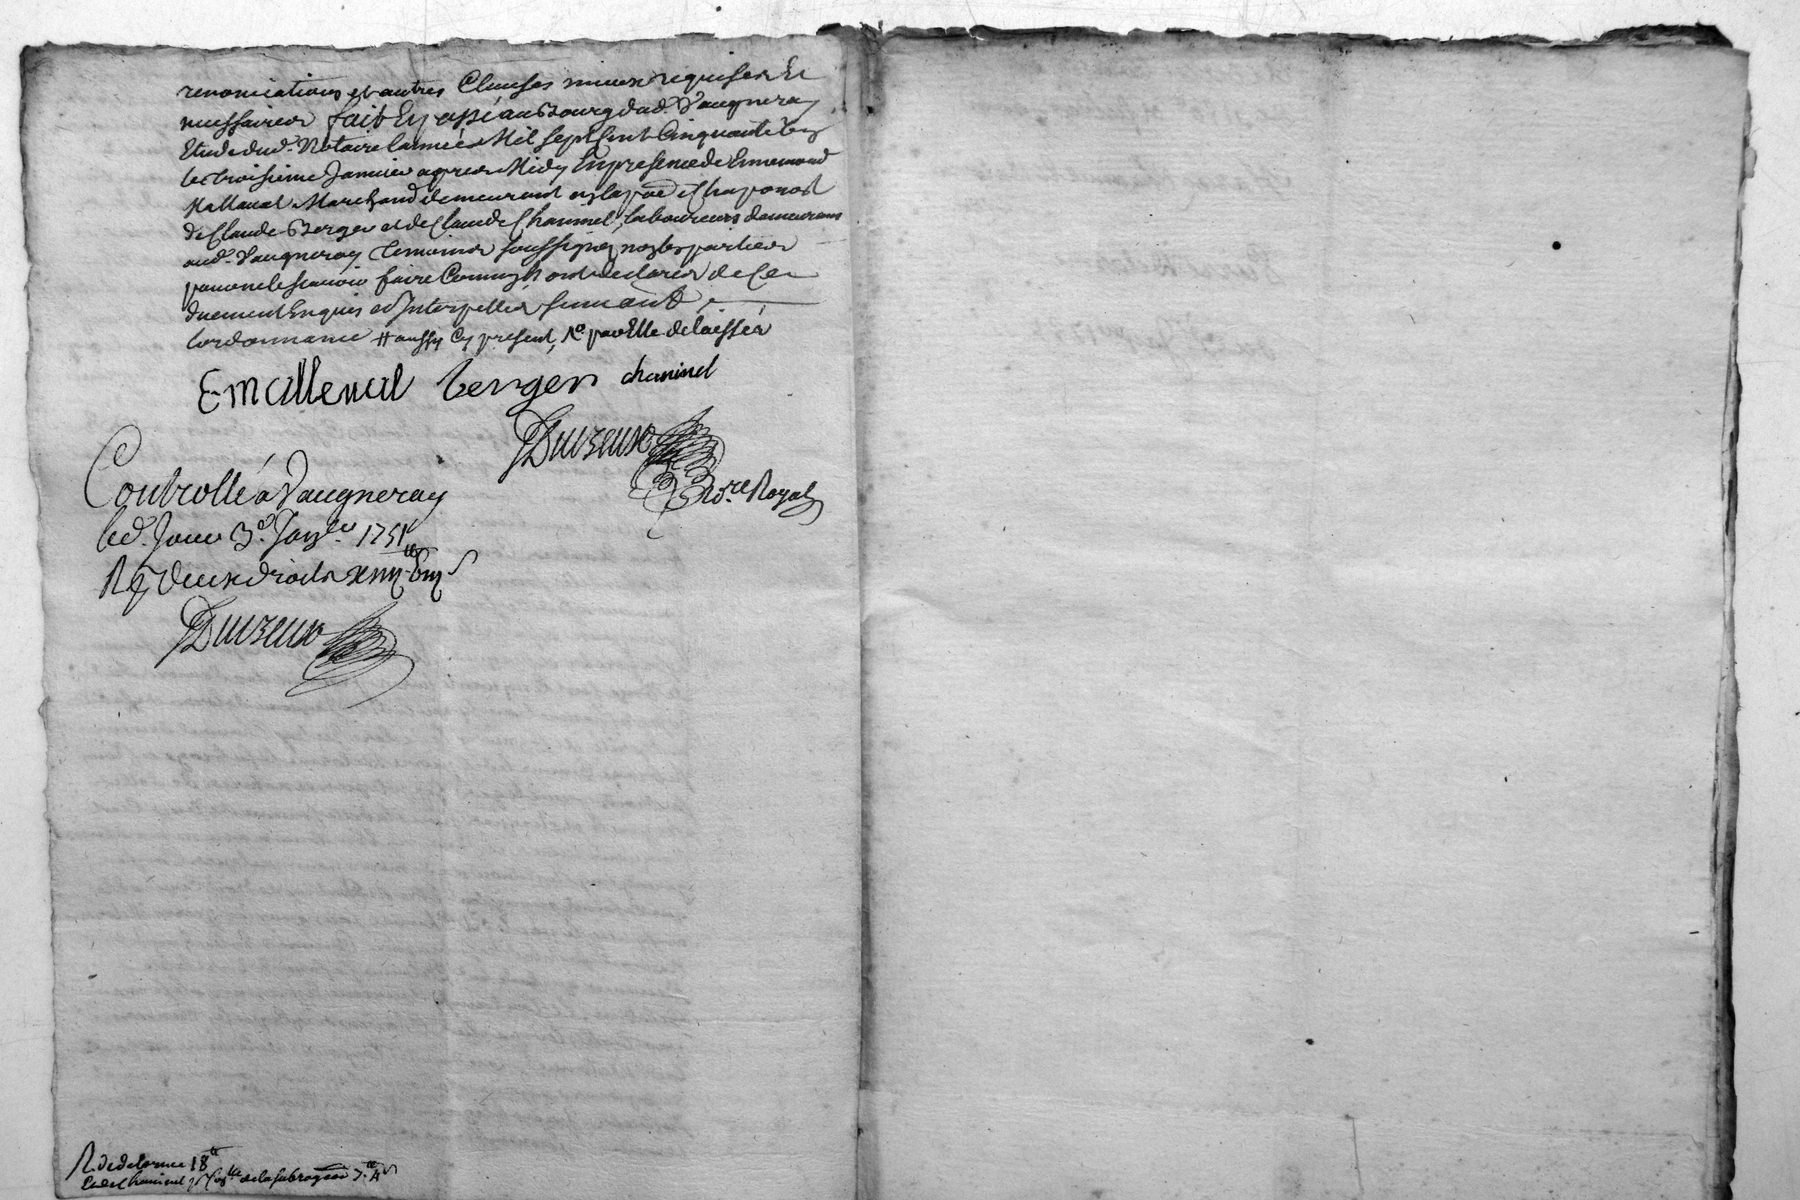 renonciations et autres Clauses mieux requises Et
necessaires fait Et passé au Bourg dud. Vaugneray
Etude dud. Notaire l'année Mil sept Cent Cinquante Un
le troisieme Janvier apres Midy En presence de Ennemond
Mallaval Marchand demeurant en la pār de Chaponost
de Claude Berger et de Claude Chaninel, laboureurs demeurans
aud. Vaugneray temoins soussignez non les parties
pour ne le scavoir faire Comm'ils ont declarés de Ce
duement Enquis et Interpellés suivant
lordonnance # aussy Cy present, par Elle delaissés
E mallaval berger chaninel
Duizeux
No.re Royal
Controllé á Vaugneray
led. Jour 3.e Janv.er 1751
R deux droits
Duizeux
R. de delorme 18 tt
de la subrogaōn 7. tt 4 s